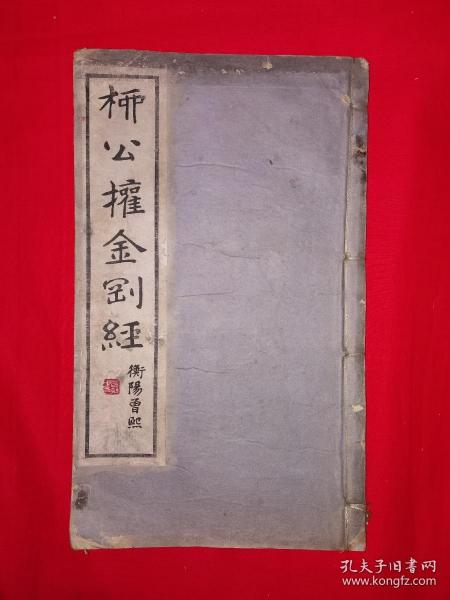 柳公權金剛經
衡陽曾熙
孔夫子旧书网
www.kongfz.com